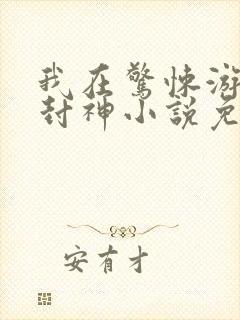 我在驚悚游
封神小説免
安有才